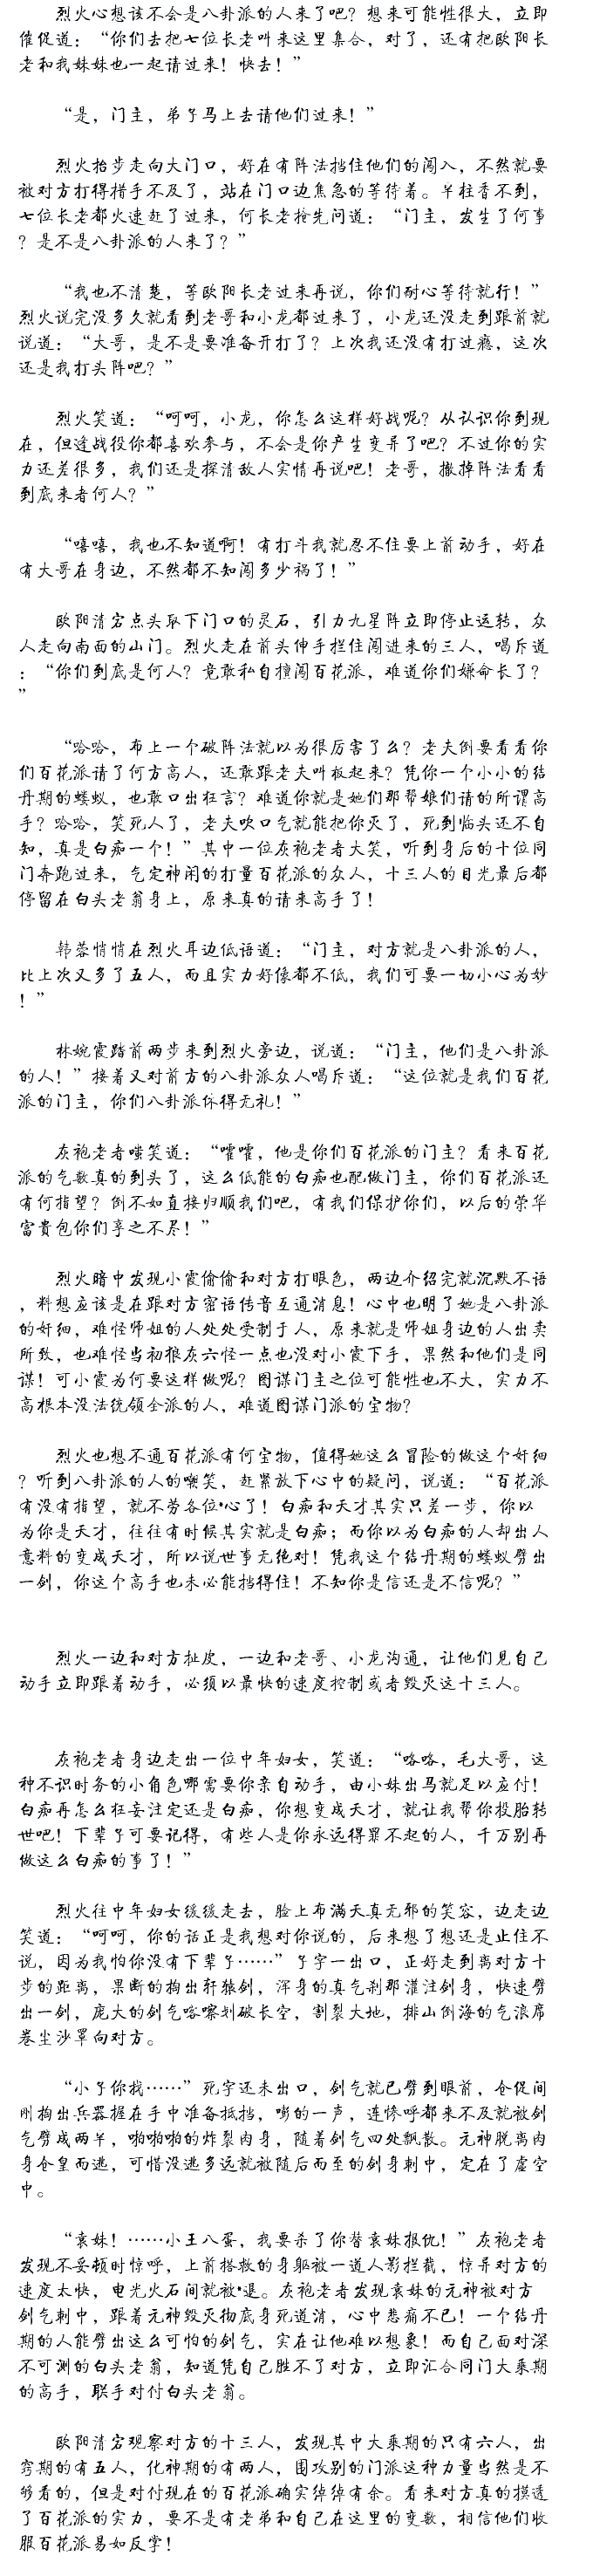 烈火心想该不会是八卦派的人来了吧？想来可能性很大，立即
催促道：“你们去把七位长老叫来这里集合，对了，还有把欧阳长
老和我妹妹也一起请过来！快去！”
“是，门主，弟子马上去请他们过来！”
烈火抬步走向大门口，好在有阵法挡住他们的闯入，不然就要
被对方打得措手不及了，站在门口边焦急的等待着。半柱香不到，
七位长老都火速赶了过来，何长老抢先问道：“门主，发生了何事
？是不是八卦派的人来了？”
“我也不清楚，等欧阳长老过来再说，你们耐心等待就行！”
烈火说完没多久就看到老哥和小龙都过来了，小龙还没走到跟前就
说道：“大哥，是不是要准备开打了？上次我还没有打过瘾，这次
还是我打头阵吧？”
烈火笑道：“呵呵，小龙，你怎么这样好战呢？从认识你到现
在，但逢战役你都喜欢参与，不会是你产生变异了吧？不过你的实
力还差很多，我们还是探清敌人实情再说吧！老哥，撤掉阵法看看
到底来者何人？”
“嘻嘻，我也不知道啊！有打斗我就忍不住要上前动手，好在
有大哥在身边，不然都不知闯多少祸了！”
欧阳清宏点头取下门口的灵石，引力九星阵立即停止运转，众
人走向南面的山门。烈火走在前头伸手拦住闯进来的三人，喝斥道
：“你们到底是何人？竟敢私自擅闯百花派，难道你们嫌命长了？
”
“哈哈，布上一个破阵法就以为很厉害了么？老夫倒要看看你
们百花派请了何方高人，还敢跟老夫叫板起来？凭你一个小小的结
丹期的蝼蚁，也敢口出狂言？难道你就是她们那帮娘们请的所谓高
手？哈哈，笑死人了，老夫吹口气就能把你灭了，死到临头还不自
知，真是白痴一个！”其中一位灰袍老者大笑，听到身后的十位同
门奔跑过来，气定神闲的打量百花派的众人，十三人的目光最后都
停留在白头老翁身上，原来真的请来高手了！
韩蓉悄悄在烈火耳边低语道：“门主，对方就是八卦派的人，
比上次又多了五人，而且实力好像都不低，我们可要一切小心为妙
！”
林婉霞踏前两步来到烈火旁边，说道：“门主，他们是八卦派
的人！”接着又对前方的八卦派众人喝斥道：“这位就是我们百花
派的门主，你们八卦派休得无礼！”
灰袍老者嗤笑道：“嚯嚯，他是你们百花派的门主？看来百花
派的气数真的到头了，这么低能的白痴也配做门主，你们百花派还
有何指望？倒不如直接归顺我们吧，有我们保护你们，以后的荣华
富贵包你们享之不尽！”
烈火暗中发现小霞偷偷和对方打眼色，两边介绍完就沉默不语
，料想应该是在跟对方密语传音互通消息！心中也明了她是八卦派
的奸细，难怪师姐的人处处受制于人，原来就是师姐身边的人出卖
所致，也难怪当初狼灰六怪一点也没对小霞下手，果然和他们是同
谋！可小霞为何要这样做呢？图谋门主之位可能性也不大，实力不
高根本没法统领全派的人，难道图谋门派的宝物？
烈火也想不通百花派有何宝物，值得她这么冒险的做这个奸细
？听到八卦派的人的嘲笑，赶紧放下心中的疑问，说道：“百花派
有没有指望，就不劳各位心了！白痴和天才其实只差一步，你以
为你是天才，往往有时候其实就是白痴；而你以为白痴的人却出人
意料的变成天才，所以说世事无绝对！凭我这个结丹期的蝼蚁劈出
一剑，你这个高手也未必能挡得住！不知你是信还是不信呢？”
烈火一边和对方扯皮，一边和老哥、小龙沟通，让他们见自己
动手立即跟着动手，必须以最快的速度控制或者毁灭这十三人。
灰袍老者身边走出一位中年妇女，笑道：“咯咯，毛大哥，这
种不识时务的小角色哪需要你亲自动手，由小妹出马就足以应付！
白痴再怎么狂妄注定还是白痴，你想变成天才，就让我帮你投胎转
世吧！下辈子可要记得，有些人是你永远得罪不起的人，千万别再
做这么白痴的事了！”
烈火往中年妇女缓缓走去，脸上布满天真无邪的笑容，边走边
笑道：“呵呵，你的话正是我想对你说的，后来想了想还是止住不
说，因为我怕你没有下辈子……”子字一出口，正好走到离对方十
步的距离，果断的掏出轩辕剑，浑身的真气刹那灌注剑身，快速劈
出一剑，庞大的剑气喀嚓划破长空，割裂大地，排山倒海的气浪席
卷尘沙罩向对方。
“小子你找……”死字还未出口，剑气就已劈到眼前，仓促间
刚掏出兵器握在手中准备抵挡，嘭的一声，连惨呼都来不及就被剑
气劈成两半，啪啪啪的炸裂肉身，随着剑气四处飘散。元神脱离肉
身仓皇而逃，可惜没逃多远就被随后而至的剑身刺中，定在了虚空
中。
“袁妹！……小王八蛋，我要杀了你替袁妹报仇！”灰袍老者
发现不妥顿时惊呼，上前搭救的身躯被一道人影拦截，惊异对方的
速度太快，电光火石间就被退。灰袍老者发现袁妹的元神被对方
剑气刺中，跟着元神毁灭彻底身死道消，心中悲痛不已！一个结丹
期的人能劈出这么可怕的剑气，实在让他难以想象！而自己面对深
不可测的白头老翁，知道凭自己胜不了对方，立即汇合同门大乘期
的高手，联手对付白头老翁。
欧阳清宏观察对方的十三人，发现其中大乘期的只有六人，出
窍期的有五人，化神期的有两人，围攻别的门派这种力量当然是不
够看的，但是对付现在的百花派确实绰绰有余。看来对方真的摸透
了百花派的实力，要不是有老弟和自己在这里的变数，相信他们收
服百花派易如反掌！